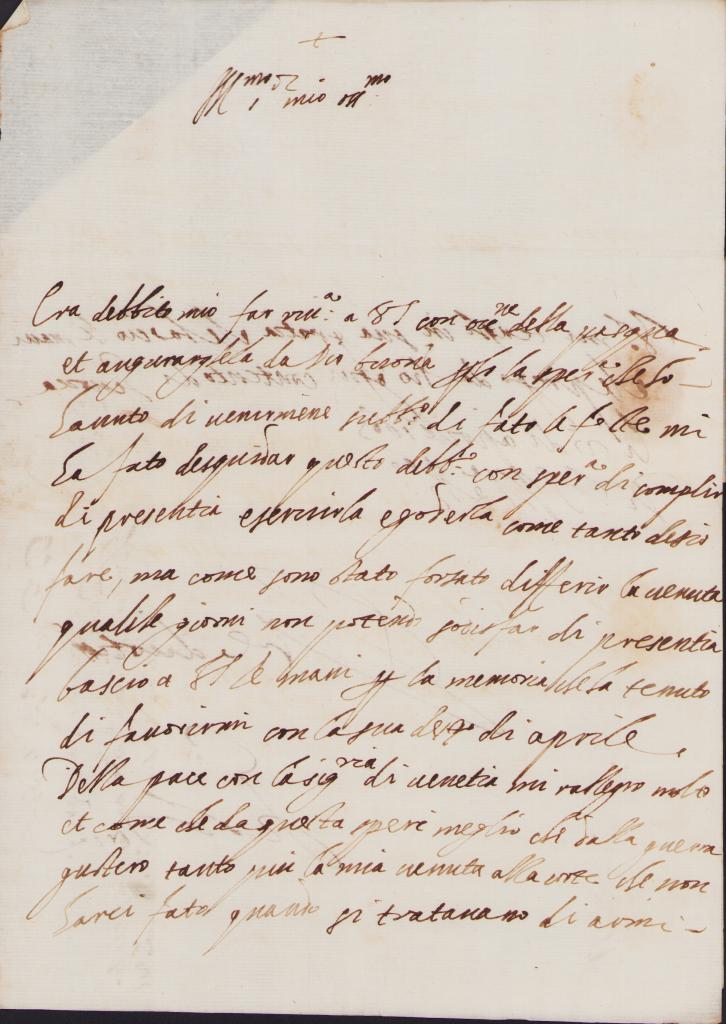 +
Ill.mo S.r mio oss.mo
Era debbito mio far riv.a a VS con occ.ne della pasqua
et augurargliela da Dio buona, ma la sper.a che ho
havuto di venirmene subb.o di fato le feste mi
ha fato desguidar questo debb.o con sper.a di complir
di presentia e servirla e goderla come tanto desio
fare, ma come sono stato forsato differir la venuta
qualche giorni non potendo sodisfar di presentia
bascio a VS le mani per la memoria che ha tenuto
di favorirmi con la sua de di aprile.
Della pace con la sig.ria di venetia mi rallegro molto
et come che da questa speri meglio che dalla guerra
gustero tanto piu la mia venuta alla corte che non
harei fato quando si tratavano di armi -